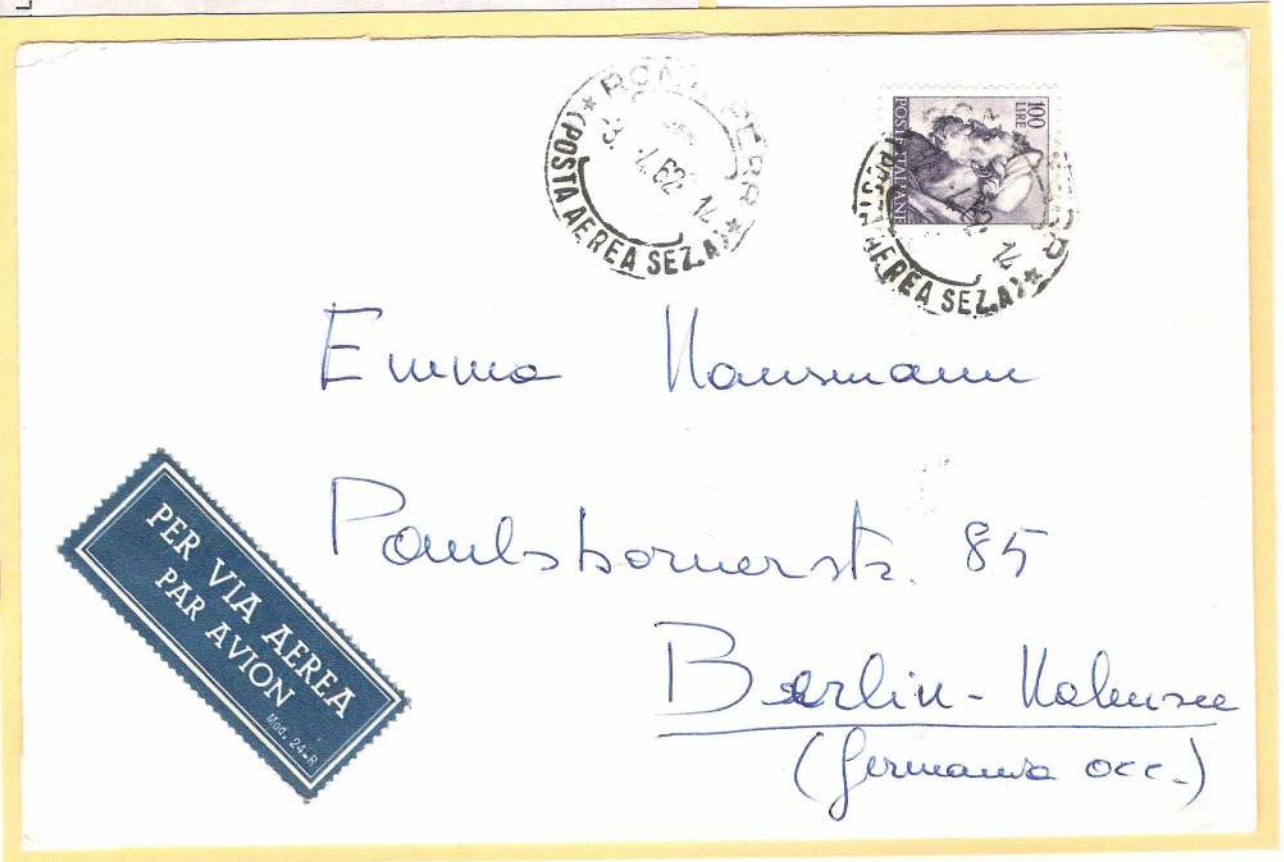 ★ ROMA FERR ★
(POSTA AEREA SEZ.A)
3. 4.62 14
100
LIRE
POSTE ITALIANE
(POSTA AEREA SEZ.A)
4.62 14
Emma Hausmann
Paulsbornerstr. 85
Berlin-Halensee
(Germania occ.)
PER VIA AEREA
PAR AVION
Mod. 24-R